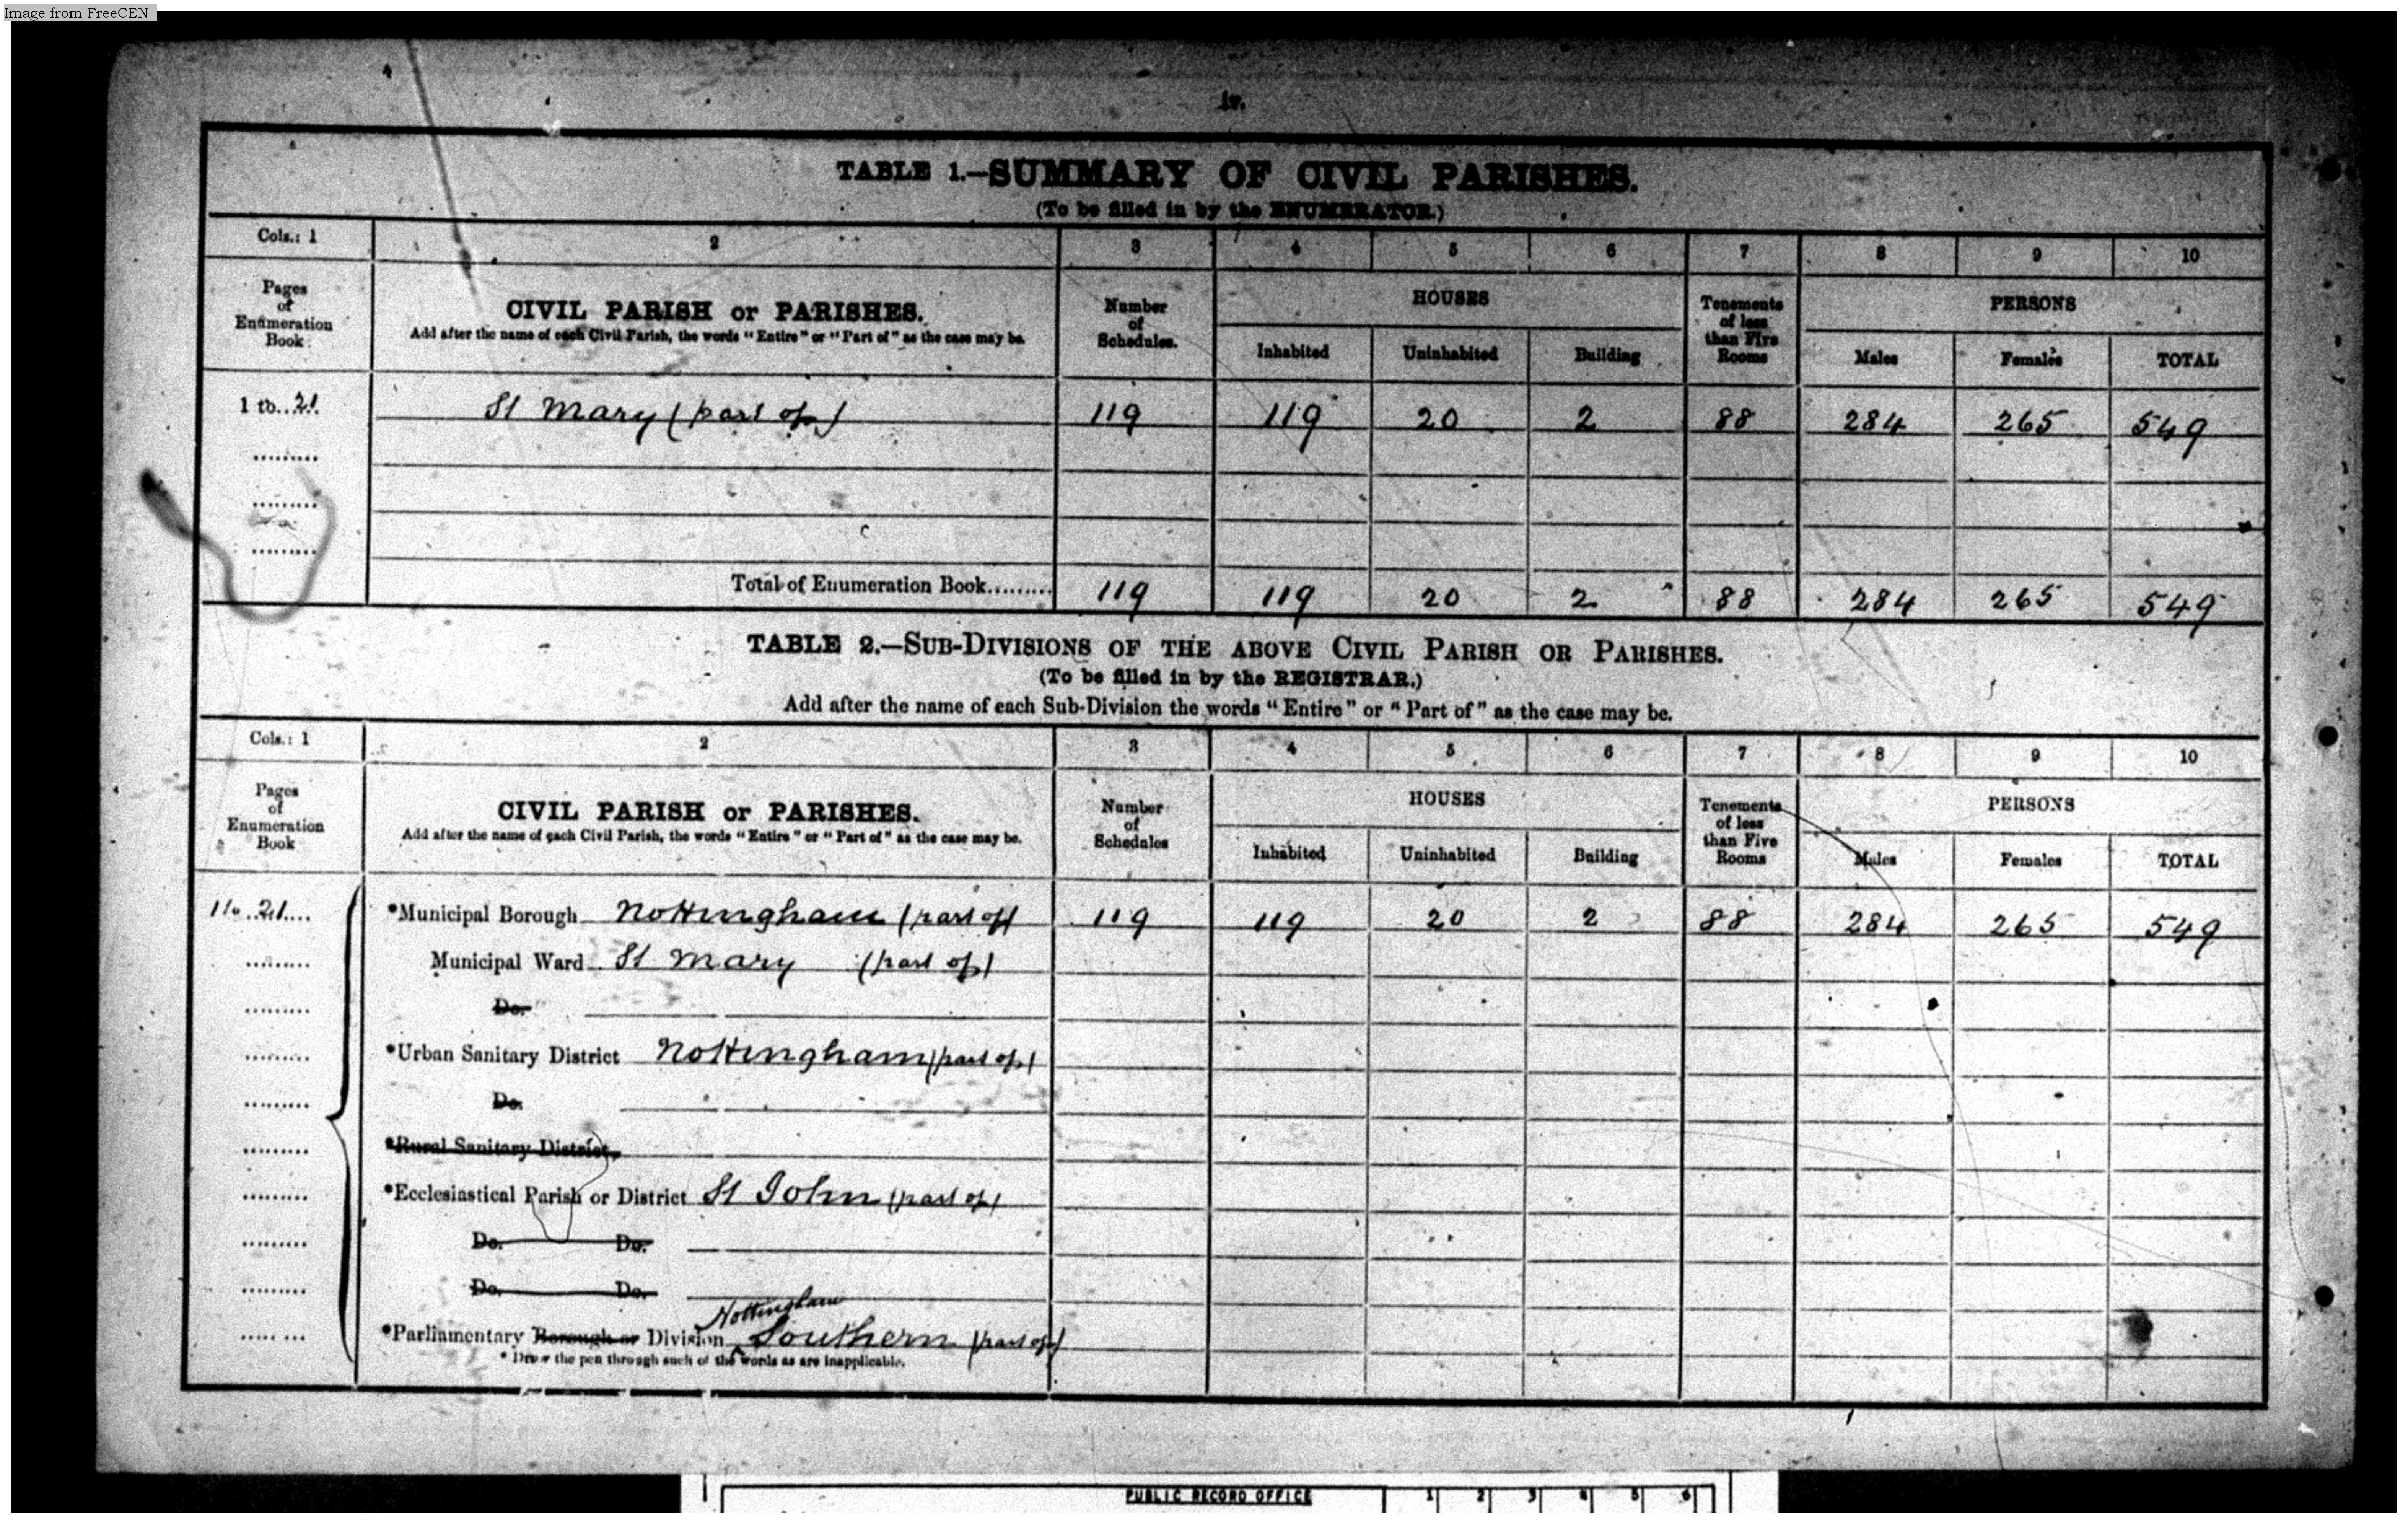 Image from FreeCEN
iv.
TABLE 1.—SUMMARY OF CIVIL PARISHES.
(To be filled in by the ENUMERATOR.)
Cols.: 1 2 3 4 5 6 7 8 9 10
Pages of Enumeration Book
CIVIL PARISH or PARISHES.
Add after the name of each Civil Parish, the words "Entire" or "Part of" as the case may be.
Number of Schedules.
HOUSES
Inhabited Uninhabited Building
Tenements of less than Five Rooms
PERSONS
Males Females TOTAL
1 to..21.. St Mary (part of) 119 119 20 2 88 284 265 549
Total of Enumeration Book......... 119 119 20 2 88 284 265 549
TABLE 2.—SUB-DIVISIONS OF THE ABOVE CIVIL PARISH OR PARISHES.
(To be filled in by the REGISTRAR.)
Add after the name of each Sub-Division the words "Entire" or "Part of" as the case may be.
Cols.: 1 2 3 4 5 6 7 8 9 10
Pages of Enumeration Book
CIVIL PARISH or PARISHES.
Add after the name of each Civil Parish, the words "Entire" or "Part of" as the case may be.
Number of Schedules
HOUSES
Inhabited Uninhabited Building
Tenements of less than Five Rooms
PERSONS
Males Females TOTAL
1 to..21.... *Municipal Borough Nottingham (part of) 119 119 20 2 88 284 265 549
Municipal Ward St Mary (part of)
Do.
*Urban Sanitary District Nottingham (part of)
Do.
*Rural Sanitary District
*Ecclesiastical Parish or District St John (part of)
Do. Do.
Do. Do.
Nottingham
*Parliamentary Borough or Division Southern (part of)
* Draw the pen through such of the words as are inapplicable.
PUBLIC RECORD OFFICE 1 2 3 4 5 6